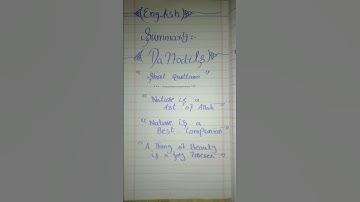 (English)
Summary:-
Daffodils
"Short Questions"
"Nature is a
Art of Allah"
"Nature is a
Best Companion"
"A Thing of Beauty
is a joy Forever"